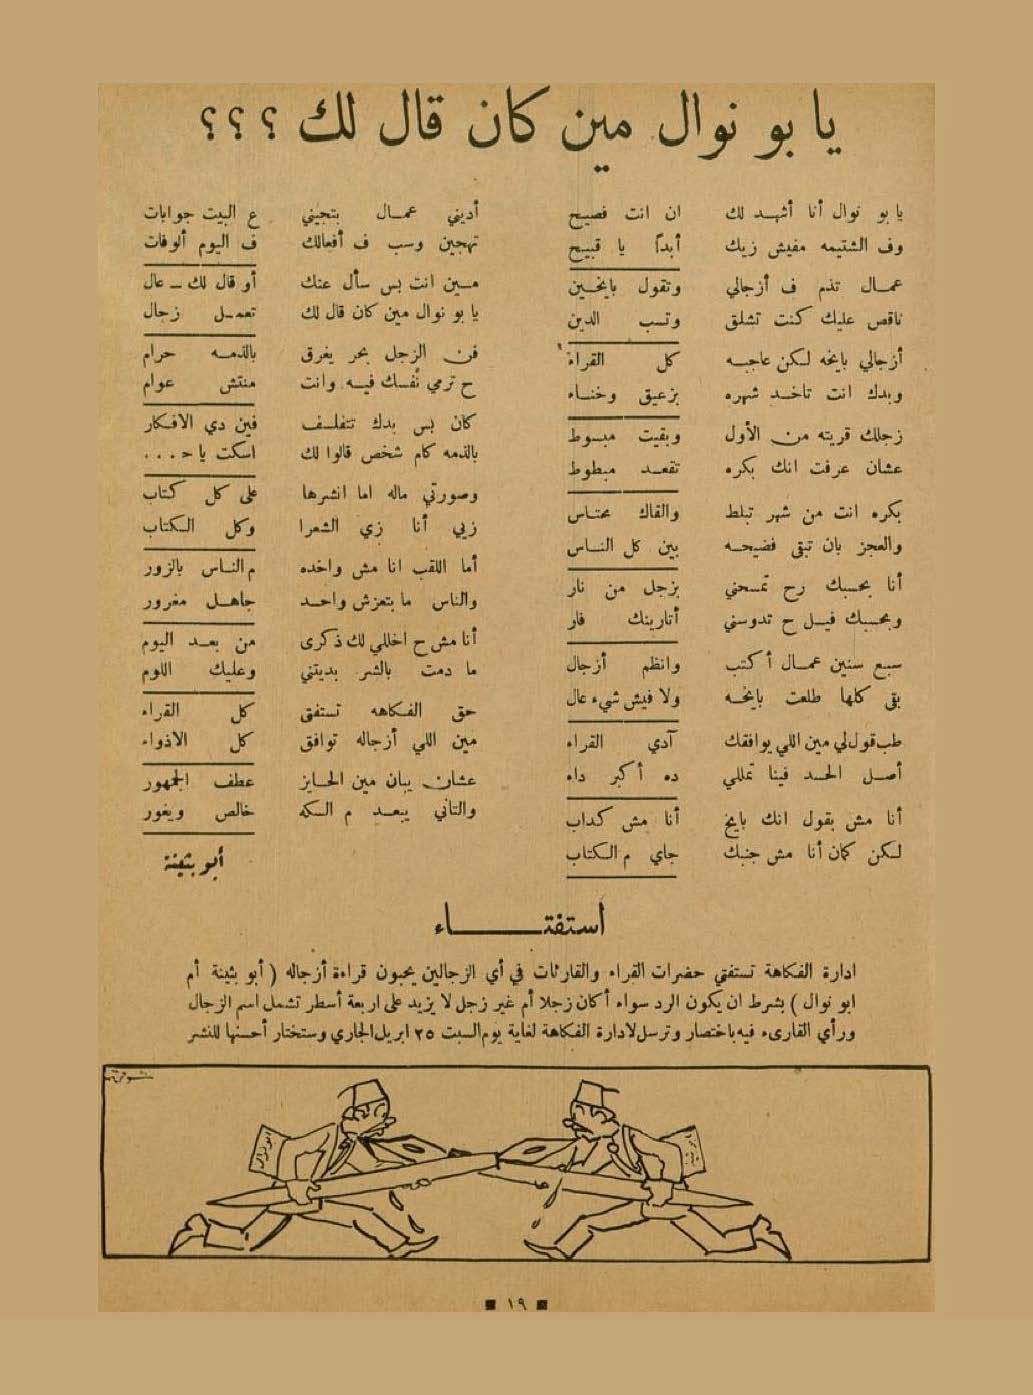 يا بو نوال مين كان قال لك ؟؟؟
يا بو نوال أنا أشهد لك ان انت فصيح
وف الشتيمه مفيش زيك أبداً يا قبيح
عمال تذم ف أزجالي وتقول بايخين
ناقص عليك كنت تشلق وتسب الدين
أزجالي بايخه لكن عاجبه كل القراء
وبدك انت تاخد شهره بزعيق وخناء
زجلك قريته من الأول وبقيت مبسوط
عشان عرفت انك بكره تقعد مبطوط
بكره انت من شهر تبلط والقاك محتاس
والعجز بان تبقى فضيحه بين كل الناس
أنا بحسبك رح تمسحني بزجل من نار
وبحسبك فيل ح تدوسني أتاريتك فار
سبع سنين عمال أكتب وانظم أزجال
بقى كلها طلعت بايخه ولا فيش شيء عال
طب قول لي مين اللي يوافقك آدي القراء
أصل الحسد فينا تمللي ده أكبر داء
أنا مش بقول انك بايخ أنا مش كداب
لكن كمان أنا مش جنبك جاي م الكتاب
أديني عمال بتجيني ع البيت جوابات
تهجين وسب ف أفعالك ف اليوم ألوفات
مين انت بس سأل عنك أو قال لك ــ عال
يا بو نوال مين كان قال لك تعمل زجال
فن الزجل بحر يغرق بالذمه حرام
ح ترمي نفسك فيه وانت منتش عوام
كان بس بدك تتفلسف فين دي الافكار
بالذمه كام شخص قالوا لك اسكت يا ح...
وصورتي ماله اما انشرها على كل كتاب
زيي أنا زي الشعرا وكل الكتاب
أما اللقب انا مش واخده م الناس بالزور
والناس ما بتعزش واحد جاهل مغرور
أنا مش ح اخللي لك ذكرى من بعد اليوم
ما دمت بالشر بديتني وعليك اللوم
حق الفكاهه تستفق كل القراء
مين اللي أزجاله توافق كل الاذواء
عشان يبان مين الحايز عطف الجمهور
والتاني يبعد م السكه خالص ويغور
أبو بثينة
استفتاء
ادارة الفكاهة تستفتي حضرات القراء والقارئات في أي الزجالين يحبون قراءة أزجاله ( أبو بثينة أم
ابو نوال ) بشرط ان يكون الرد سواء أكان زجلا أم غير زجل لا يزيد على اربعة أسطر تشمل اسم الزجال
ورأي القارىء فيه باختصار وترسل لادارة الفكاهة لغاية يوم السبت ٢٥ ابريل الجاري وستختار أحسنها للنشر
ابو نوال
ابو بثينة
١٩